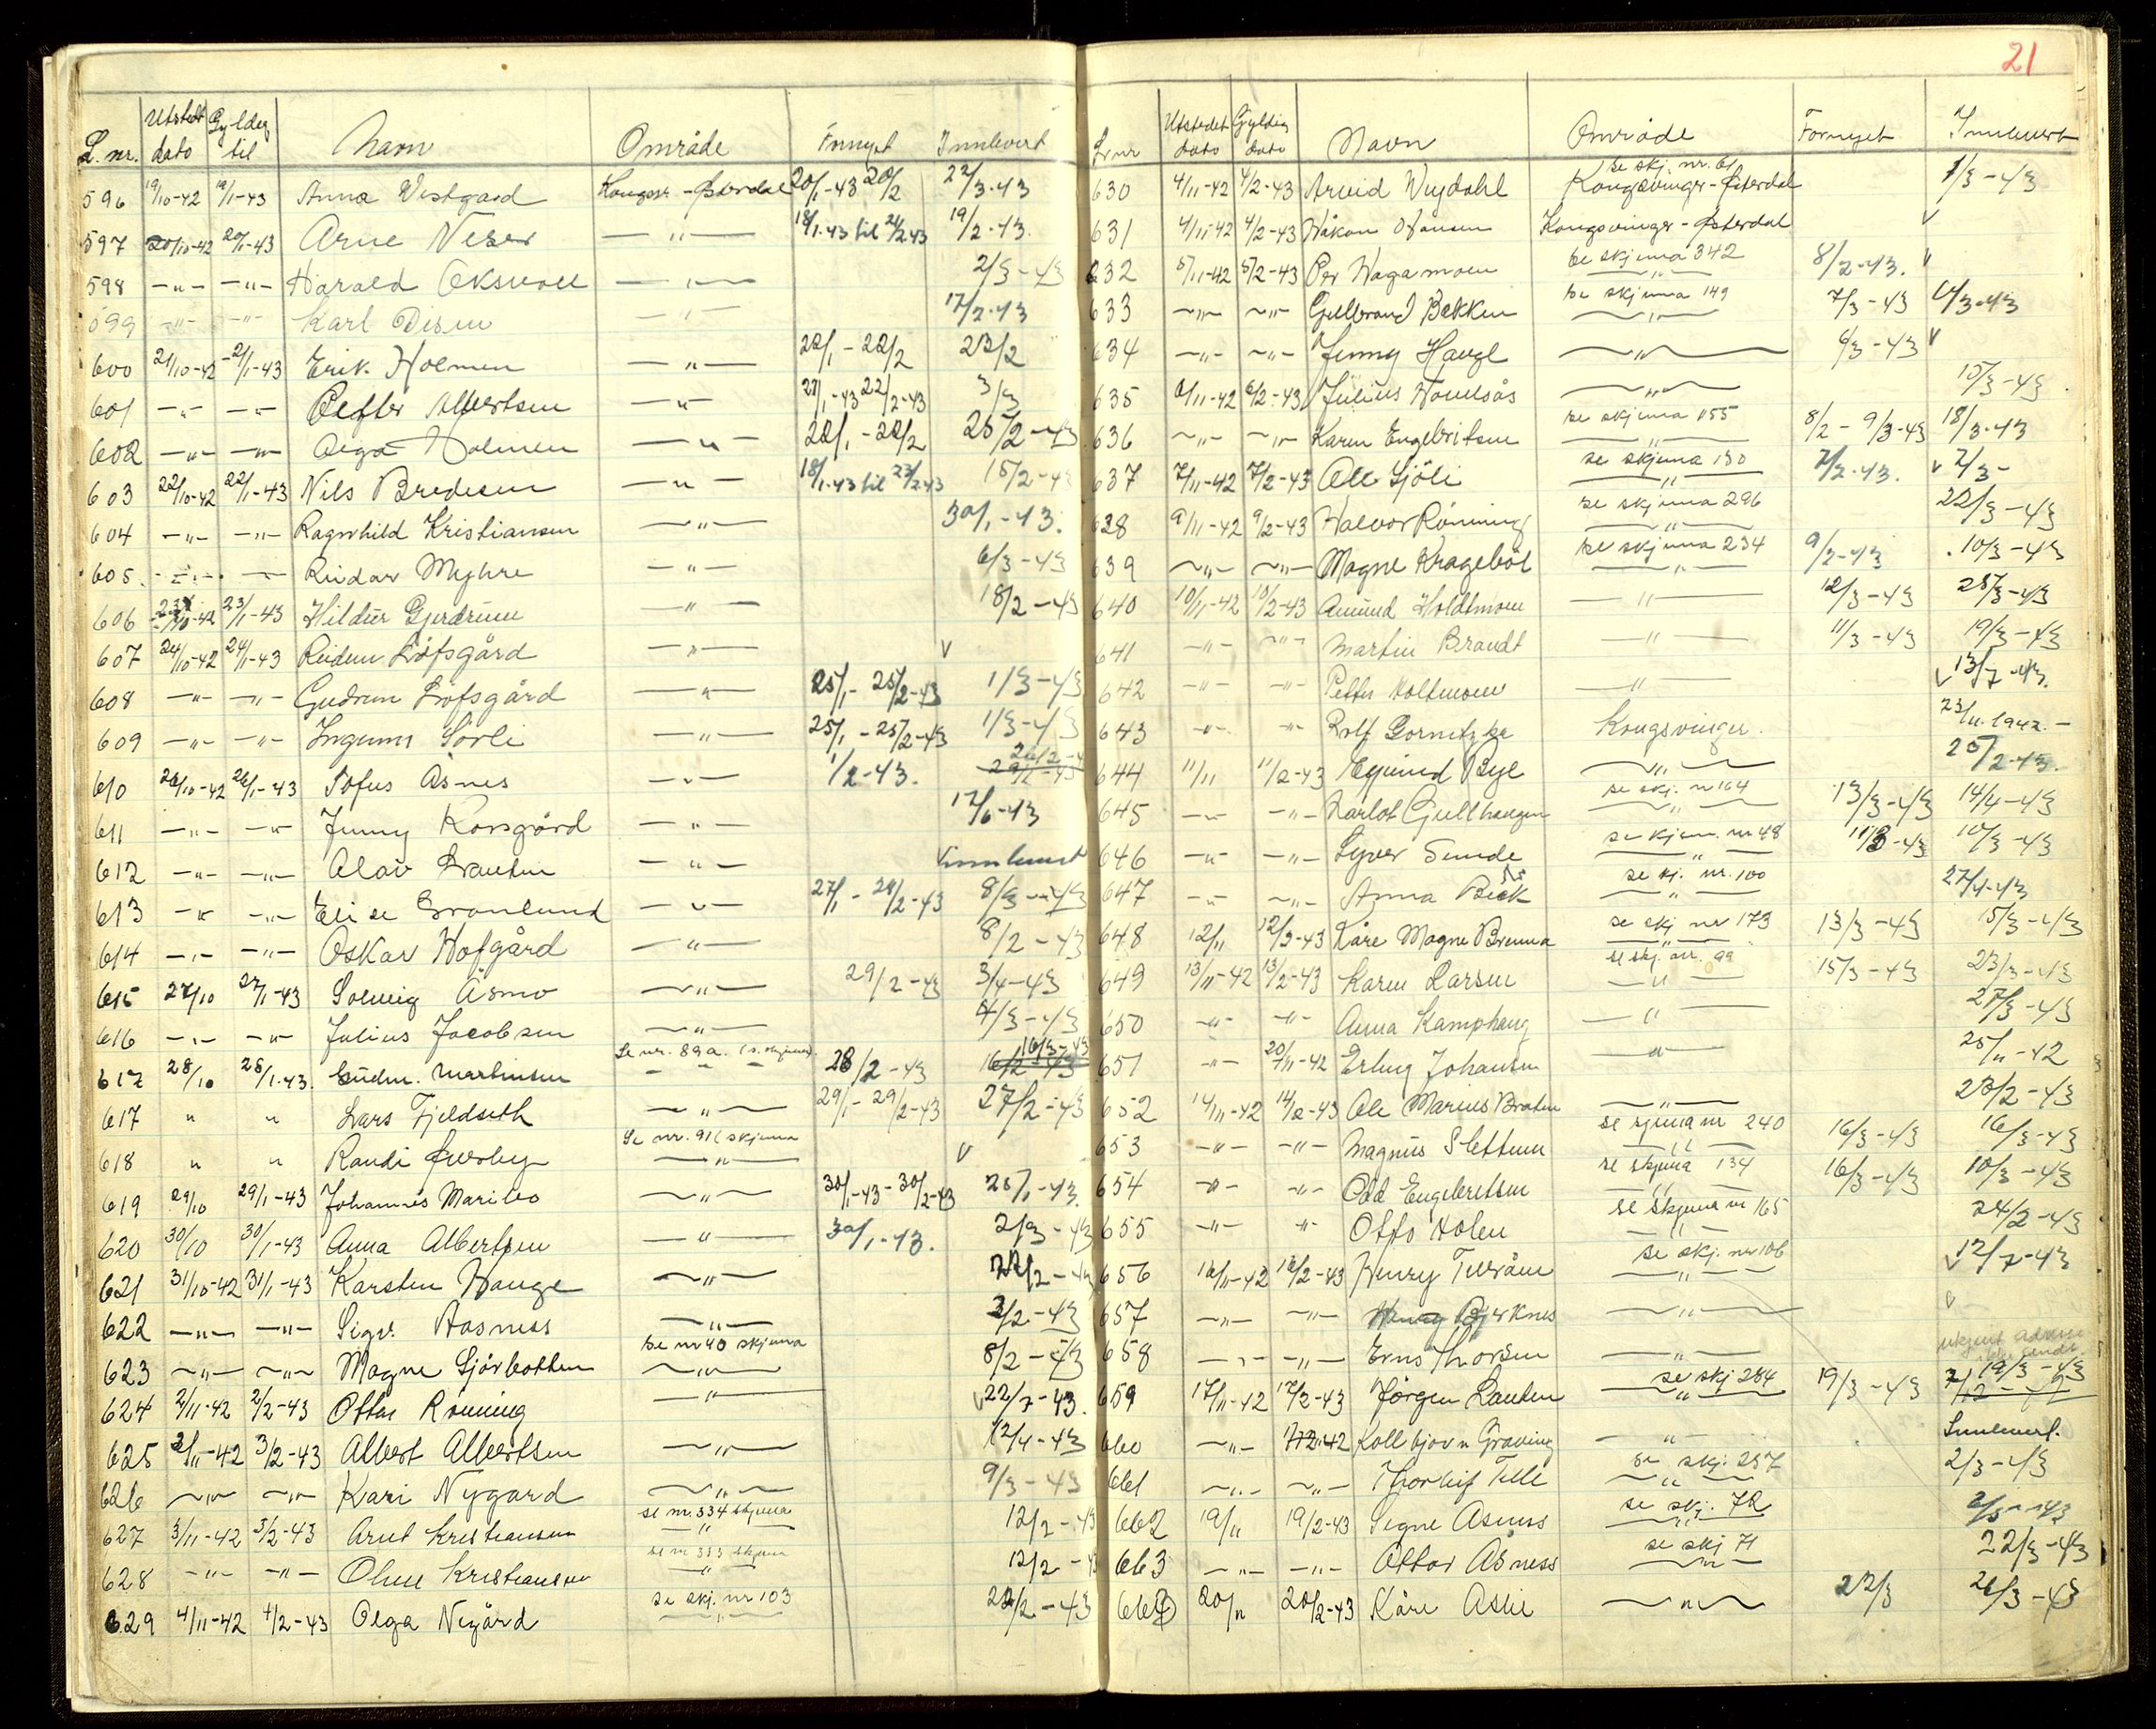 21
L. nr. Utstedt dato Gyldig til Navn Område Fornyet Innlevert
596 19/10-42 19/1-43 Anna Vestgård Kongsv - Østerdal 20/1-43 20/2 22/3-43
597 20/10-42 20/1-43 Arne Neser —„— 18/1-43 til 21/2-43 19/2-43.
598 -„- -„- Harald Oksvoll —„— 2/3-43
599 -„- -„- Karl Disen —„— 17/2-43
600 21/10-42 21/1-43 Erik Holmen —„— 22/1-22/2 23/2
601 -„- -„- Petter Albertsen —„— 22/1-43 22/2-43 3/3
602 -„- -„- Olga Holmen —„— 22/1-22/2 25/2-43
603 22/10-42 22/1-43 Nils Bredesen —„— 18/1-43 til 23/2-43 15/2-43
604 -„- -„- Ragnhild Kristiansen —„— 30/1-43.
605. -„- -„- Reidar Myhre —„— 6/3-43
606 23/10-42 23/1-43 Hildur Gjerdrum —„— 18/2-43
607 24/10-42 24/1-43 Reidun Löfsgård —„— v
608 -„- -„- Gudrun Löfsgård —„— 25/1-25/2-43 1/3-43
609 -„- -„- Ingunn Sörli —„— 25/1-25/2-43 1/3-43
610 26/10-42 26/1-43 Sofus Åsnes —„— 1/2-43. 26/2-4
611 -„- -„- Jenny Korsgård —„— 17/6-43
612 -„- -„- Olav Brauten —„— v innlevert
613 -„- -„- Elise Grönlund —„— 27/1-28/2-43 8/3-43
614 -„- -„- Oskar Hofgård —„— 8/2-43
615 27/10 27/1-43 Solveig Åsmo —„— 29/2-43 3/4-43
616 -„- -„- Julius Jacobsen —„— 4/3-43
617 28/10 28/1-43. Gudm. Martinsen Se nr. 89a. (s. skjema) -„- 28/2-43 16/3-43
617 „ „ Lars Fjeldseth —„— 29/1-29/2-43 27/2-43
618 „ „ Randi Øverby Se nr. 91 (skjema —„— v
619 29/10 29/1-43 Johannes Maribo —„— 30/1-43-30/2-43 25/1-43.
620 30/10 30/1-43 Anna Albertsen —„— 30/1-43. 2/3-43
621 31/10-42 31/1-43 Karsten Hauge —„— 22/2-43
622 -„- -„- Sigv. Aasness —„— 3/2-43
623 -„- -„- Magne Sjörbotten se nr 40 skjema —„— 8/2-43
624 2/11-42 2/2-43 Ottar Rönning —„— v 22/7-43.
625 3/11-42 3/2-43 Albert Albertsen —„— 12/4-43
626 -„- -„- Kari Nygard —„— 9/3-43
627 3/11-42 3/2-43 Arnt Kristiansen se nr. 334 skjema —„— 12/2-43
628 -„- -„- Oline Kristiansen se nr 333 skjem —„— 12/2-43
629 4/11-42 4/2-43 Olga Nygård se skj. nr 103 —„— 22/2-43
Lnr Utstedet dato Gyldig dato Navn Område Fornyet Innlevert
630 4/11-42 4/2-43 Arvid Vujdahl se skj. nr. 61 Kongsvinger-Østerdal 1/3-43
631 4/11-42 4/2-43 Håkon Hansen Kongsvinger-Østerdal v
632 5/11-42 5/2-43 Per Hagamoen se skjema 342 —„— 8/2-43. v
633 -„- -„- Gullbrand Bekken se skjema 149 —„— 7/3-43 4/3-43
634 -„- -„- Jenny Hauge —„— 6/3-43 v
635 6/11-42 6/2-43 Julius Hovelsås —„— 15/3-43
636 -„- -„- Karen Engebritsen se skjema 155 —„— 8/2-9/3-43 18/3-43
637 7/11-42 7/2-43 Ole Sjöli se skjema 130 —„— 7/2-43. v 7/3-
638 9/11-42 9/2-43 Halvor Rönning se skjema 296 —„— 22/3-43
639 -„- -„- Magne Krageböl se skjema 234 —„— 9/2-43 10/3-43
640 10/11-42 10/2-43 Amund Holdtmoen —„— 12/3-43 25/3-43
641 -„- -„- Martin Brandt —„— 11/3-43 19/3-43
642 -„- -„- Petter Holtmoen —„— v 13/7-43.
643 -„- -„- Rolf Gornitzka Kongsvinger. 23/11.1942.-
644 11/11 11/2-43 Eyvind Bye —„— 25/2-43.
645 -„- -„- Marlot Gullhaugen se skj. nr 164 —„— 13/3-43 14/4-43
646 -„- -„- Syver Sunde se skjem. nr 48 —„— 11/3-43 10/3-43
647 -„- -„- Anna Beck se skj. nr. 100 —„— 27/4-43
648 12/11 12/2-43 Kåre Magne Brenna se skj nr 173 —„— 13/3-43 15/3-43
649 13/11-42 13/2-43 Karen Larsen se skj. nr. 99 —„— 15/3-43 23/3-43
650 -„- -„- Anna Kamphaug —„— 27/3-43
651 -„- 20/11-42 Erling Johansen —„— 25/11-42
652 14/11-42 14/2-43 Ole Marius Braten —„— 23/2-43
653 -„- -„- Magnus Slettum se sjema nr 240 —„— 16/3-43 16/3-43
654 -„- -„- Odd Engebretsen se skjema 134 —„— 16/3-43 10/3-43
655 -„- -„- Otto Holen se skjema nr 165 —„— 24/2-43
656 16/11-42 16/2-43 Henry Tveråen se skj. nr 106 —„— v 12/7-43
657 -„- -„- Henry Bjerknes —„— v
658 -„- -„- Erns Thorsen —„— ukjent adresse
659 17/11-42 17/2-43 Jørgen Lauten se skj 284 —„— 19/3-43 19/3-43
660 -„- 7/12-42 Kolbjørn Graving —„— Innlevert.
661 -„- -„- Thorleif Telle se skj. 257 —„— 2/3-43
662 19/11 19/2-43 Signe Åsness se skj. 72 —„— 2/3-43
663 -„- -„- Ottar Åsness se skj 71 —„— 22/3-43
664 20/11 20/2-43 Kåre Aslie —„— 22/3 26/3-43